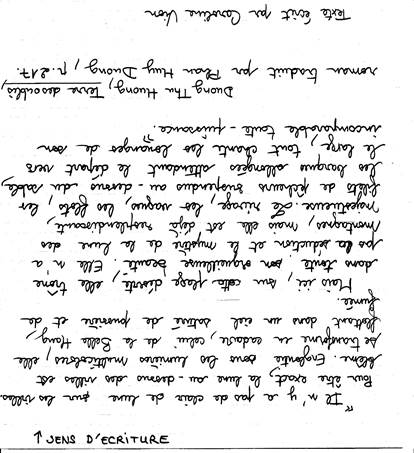 ↑ SENS D'ECRITURE
"Il n'y a pas de clair de lune sur les villes.
Pour être exact, la lune au-dessus des villes est
blême. Enfantée sous les lumières multicolores, elle
se transforme en cadavre, celui de la Belle Hong,
flottant dans un ciel saturé de poussière et de
fumée.
Mais ici, sur cette plage déserte, elle trône
dans toute son orgueilleuse beauté. Elle n'a
pas la séduction et le mystère de la lune des
montagnes, mais elle est déjà resplendissante,
majestueuse. Le rivage, les vagues, les flots, les
filets de pêcheurs suspendus au-dessus du sable,
les barques allongées attendant le départ vers
le large, tout chante les louanges de son
incomparable toute-puissance."
Duong Thu Huong, Terre des oublis,
roman traduit par Phan Huy Duong, p.217.
Texte écrit par Caroline Vion